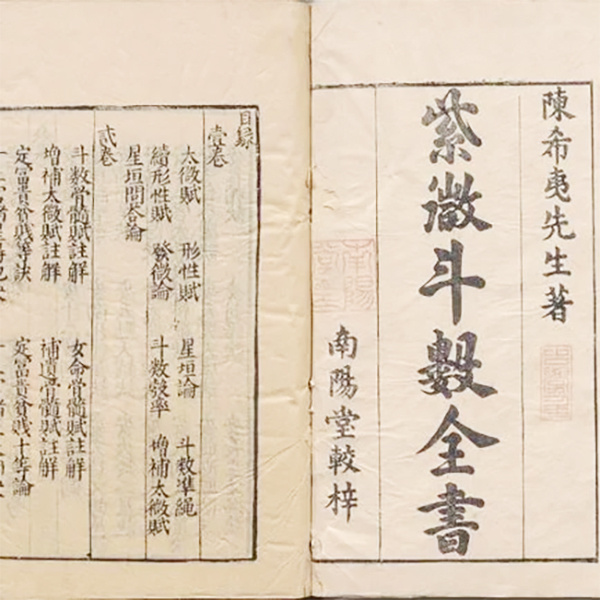 陳希夷先生著
紫微斗數全書
南陽堂較梓
南陽
目錄
壹卷
太微賦 形性賦 星垣論 斗数準繩
續形性賦 發微論 斗数彀率 増補太微賦
星垣問答論
貳卷
斗数骨髓賦註解 女命骨髓賦註解
増補太微賦註解 補遺骨髓賦註解
定富貴貧賤等訣 定富貴貧賤十等論